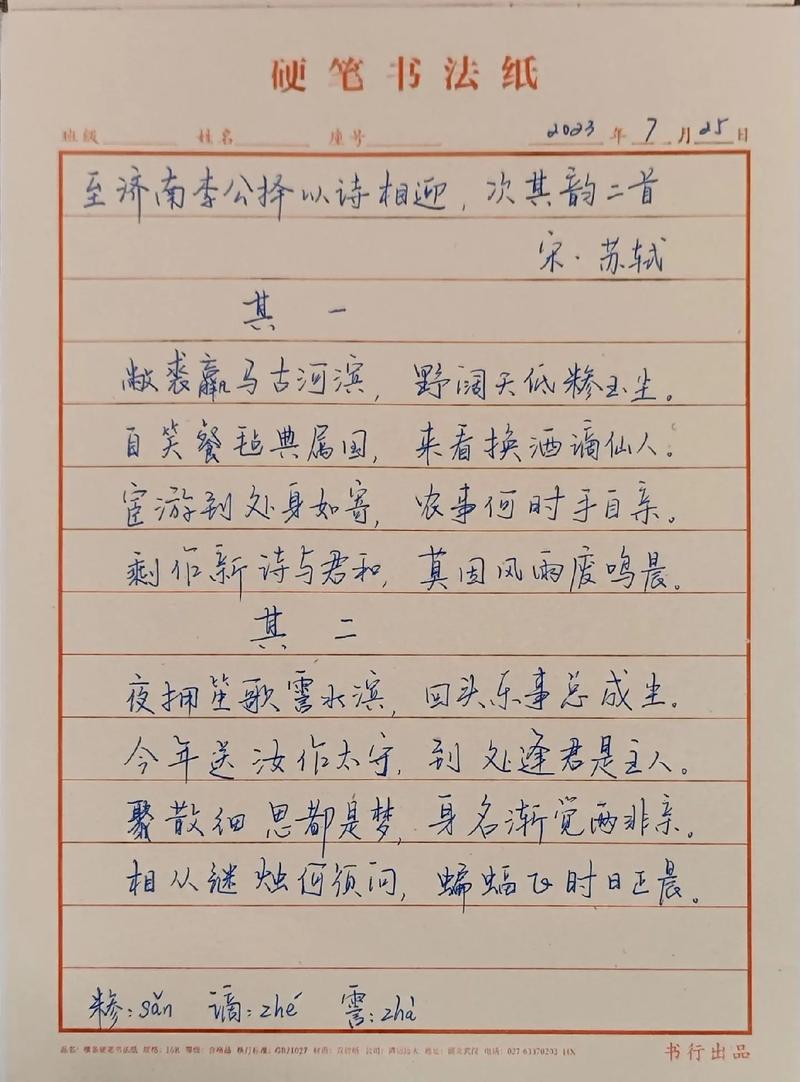 硬笔书法纸
班级 姓名 座号 2023年7月25日
至济南李公择以诗相迎，次其韵二首
宋·苏轼
其一
敝裘羸马古河滨，野阔天低糁玉尘。
自笑餐毡典属国，来看换酒谪仙人。
宦游到处身如寄，农事何时手自亲。
剩作新诗与君和，莫因风雨废鸣晨。
其二
夜拥笙歌霅水滨，回头乐事总成尘。
今年送汝作太守，到处逢君是主人。
聚散细思都是梦，身名渐觉两非亲。
相从继烛何须问，蝙蝠飞时日正晨。
糁：sǎn 谪：zhé 霅：zhà
品名：横条硬笔书法纸 规格：16K 等级：合格品 执行标准：GB/1027 电话：027-63370203 HN
书行出品